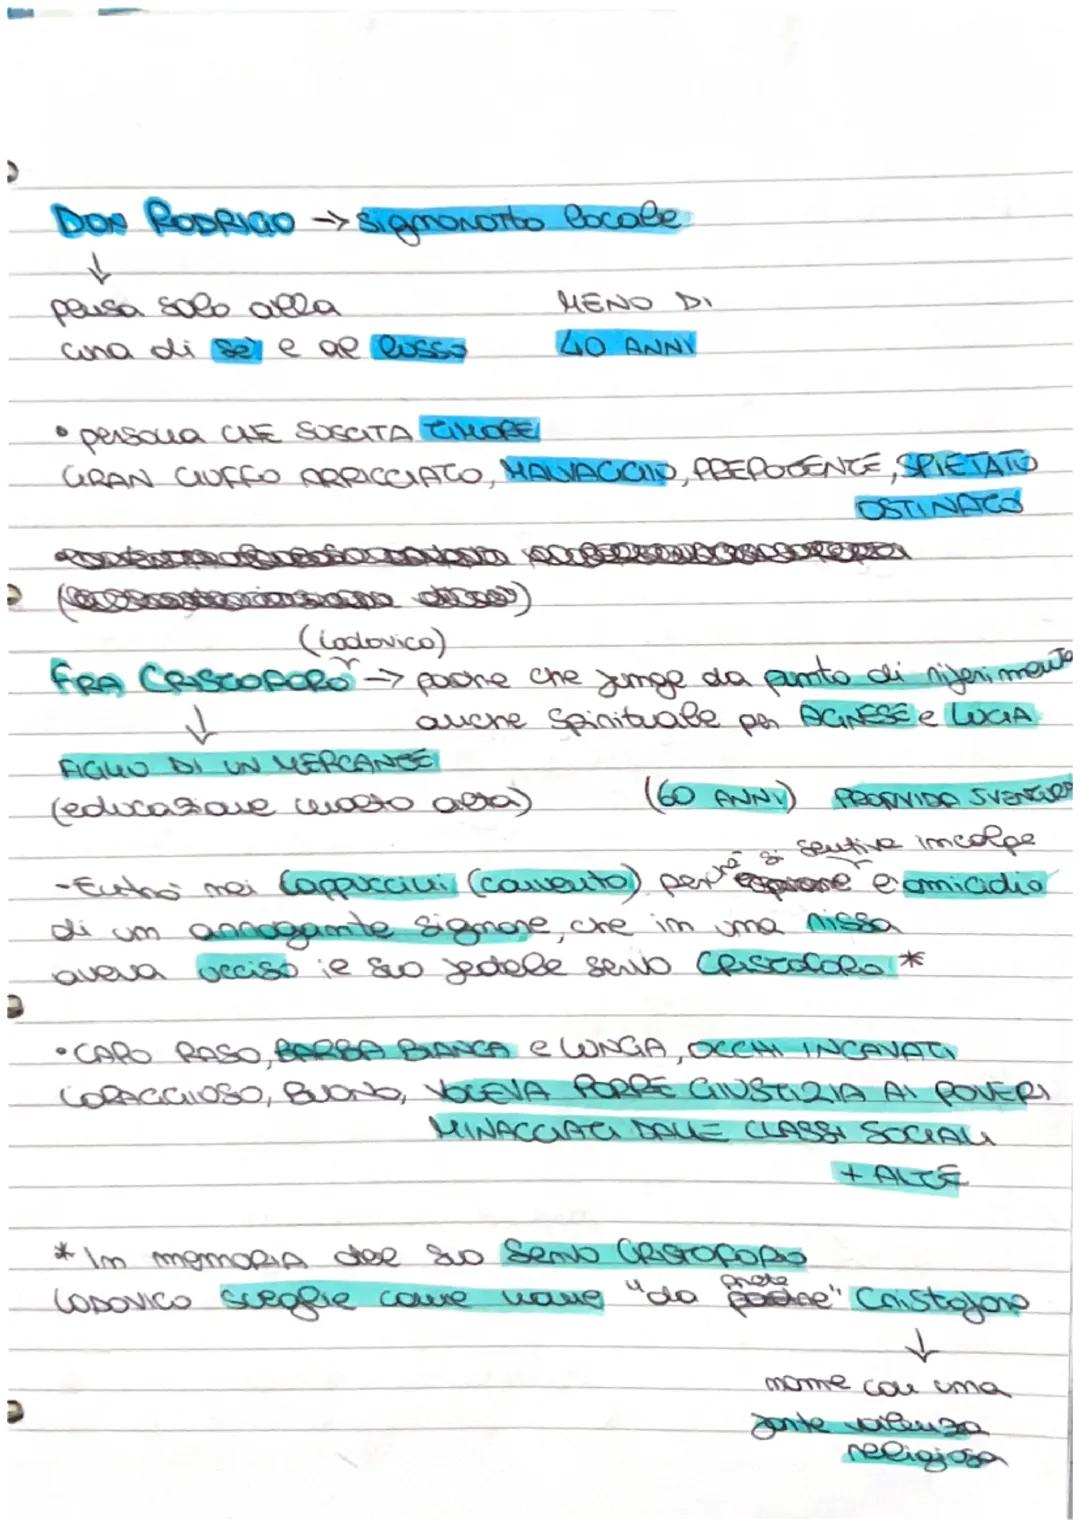 DON RODRIGO → signorotto locale
↓
pensa solo alla MENO DI
cura di sè e al lusso 40 ANNI
• persona CHE SUSCITA TIMORE
GRAN CIUFFO ARRICCIATO, MALVAGGIO, PREPOTENTE, SPIETATO
OSTINATO
(Lodovico)
FRA CRISTOFORO → padre che funge da punto di riferimento
↓ anche spirituale per AGNESE e LUCIA
FIGLIO DI UN MERCANTE
(educazione molto alta) (60 ANNI) PROVVIDA SVENTURA
si sentiva in colpa
-Entrò nei Cappuccini (convento) perchè omicidio
di un arrogante signore, che in una rissa
aveva ucciso il suo fedele servo CRISTOFORO *
• CAPO RASO, BARBA BIANCA e LUNGA, OCCHI INCAVATI
CORAGGIOSO, BUONO, VOLEVA PORRE GIUSTIZIA AI POVERI
MINACCIATI DALLE CLASSI SOCIALI
+ ALTE
* In memoria del suo servo CRISTOFORO
prete
LODOVICO sceglie come nome "da padre" Cristoforo
↓
nome con una
forte valenza
religiosa